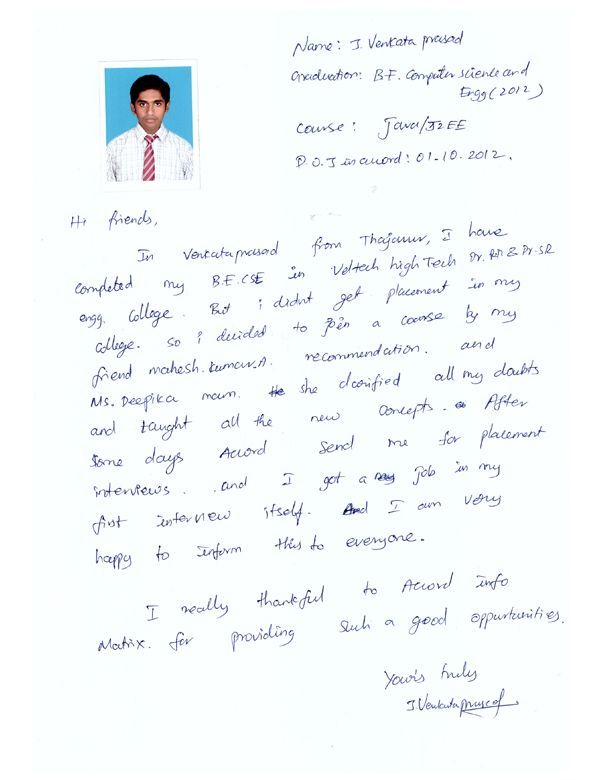 Name: J. Venkata prasad
Graduation: B.E. Computer science and
Engg (2012)
course: Java/J2EE
D.O.J in accord: 01.10.2012.
Hi friends,
Im Venkataprasad from Thajavur, I have
completed my B.E.CSE in Veltech high Tech Dr. RR & Dr. SR
engg. College. But i didnt get placement in my
college. so i decided to join a course by my
friend mahesh.kumar.A. recommendation. and
Ms. Deepika mam. she clarified all my doubts
and taught all the new concepts. After
some days Accord send me for placement
interviews. and I got a job in my
first interview itself. And I am very
happy to inform this to everyone.
I really thankful to Accord info
Matrix. for providing such a good oppurtunities.
Your's truly
J.Venkataprasad